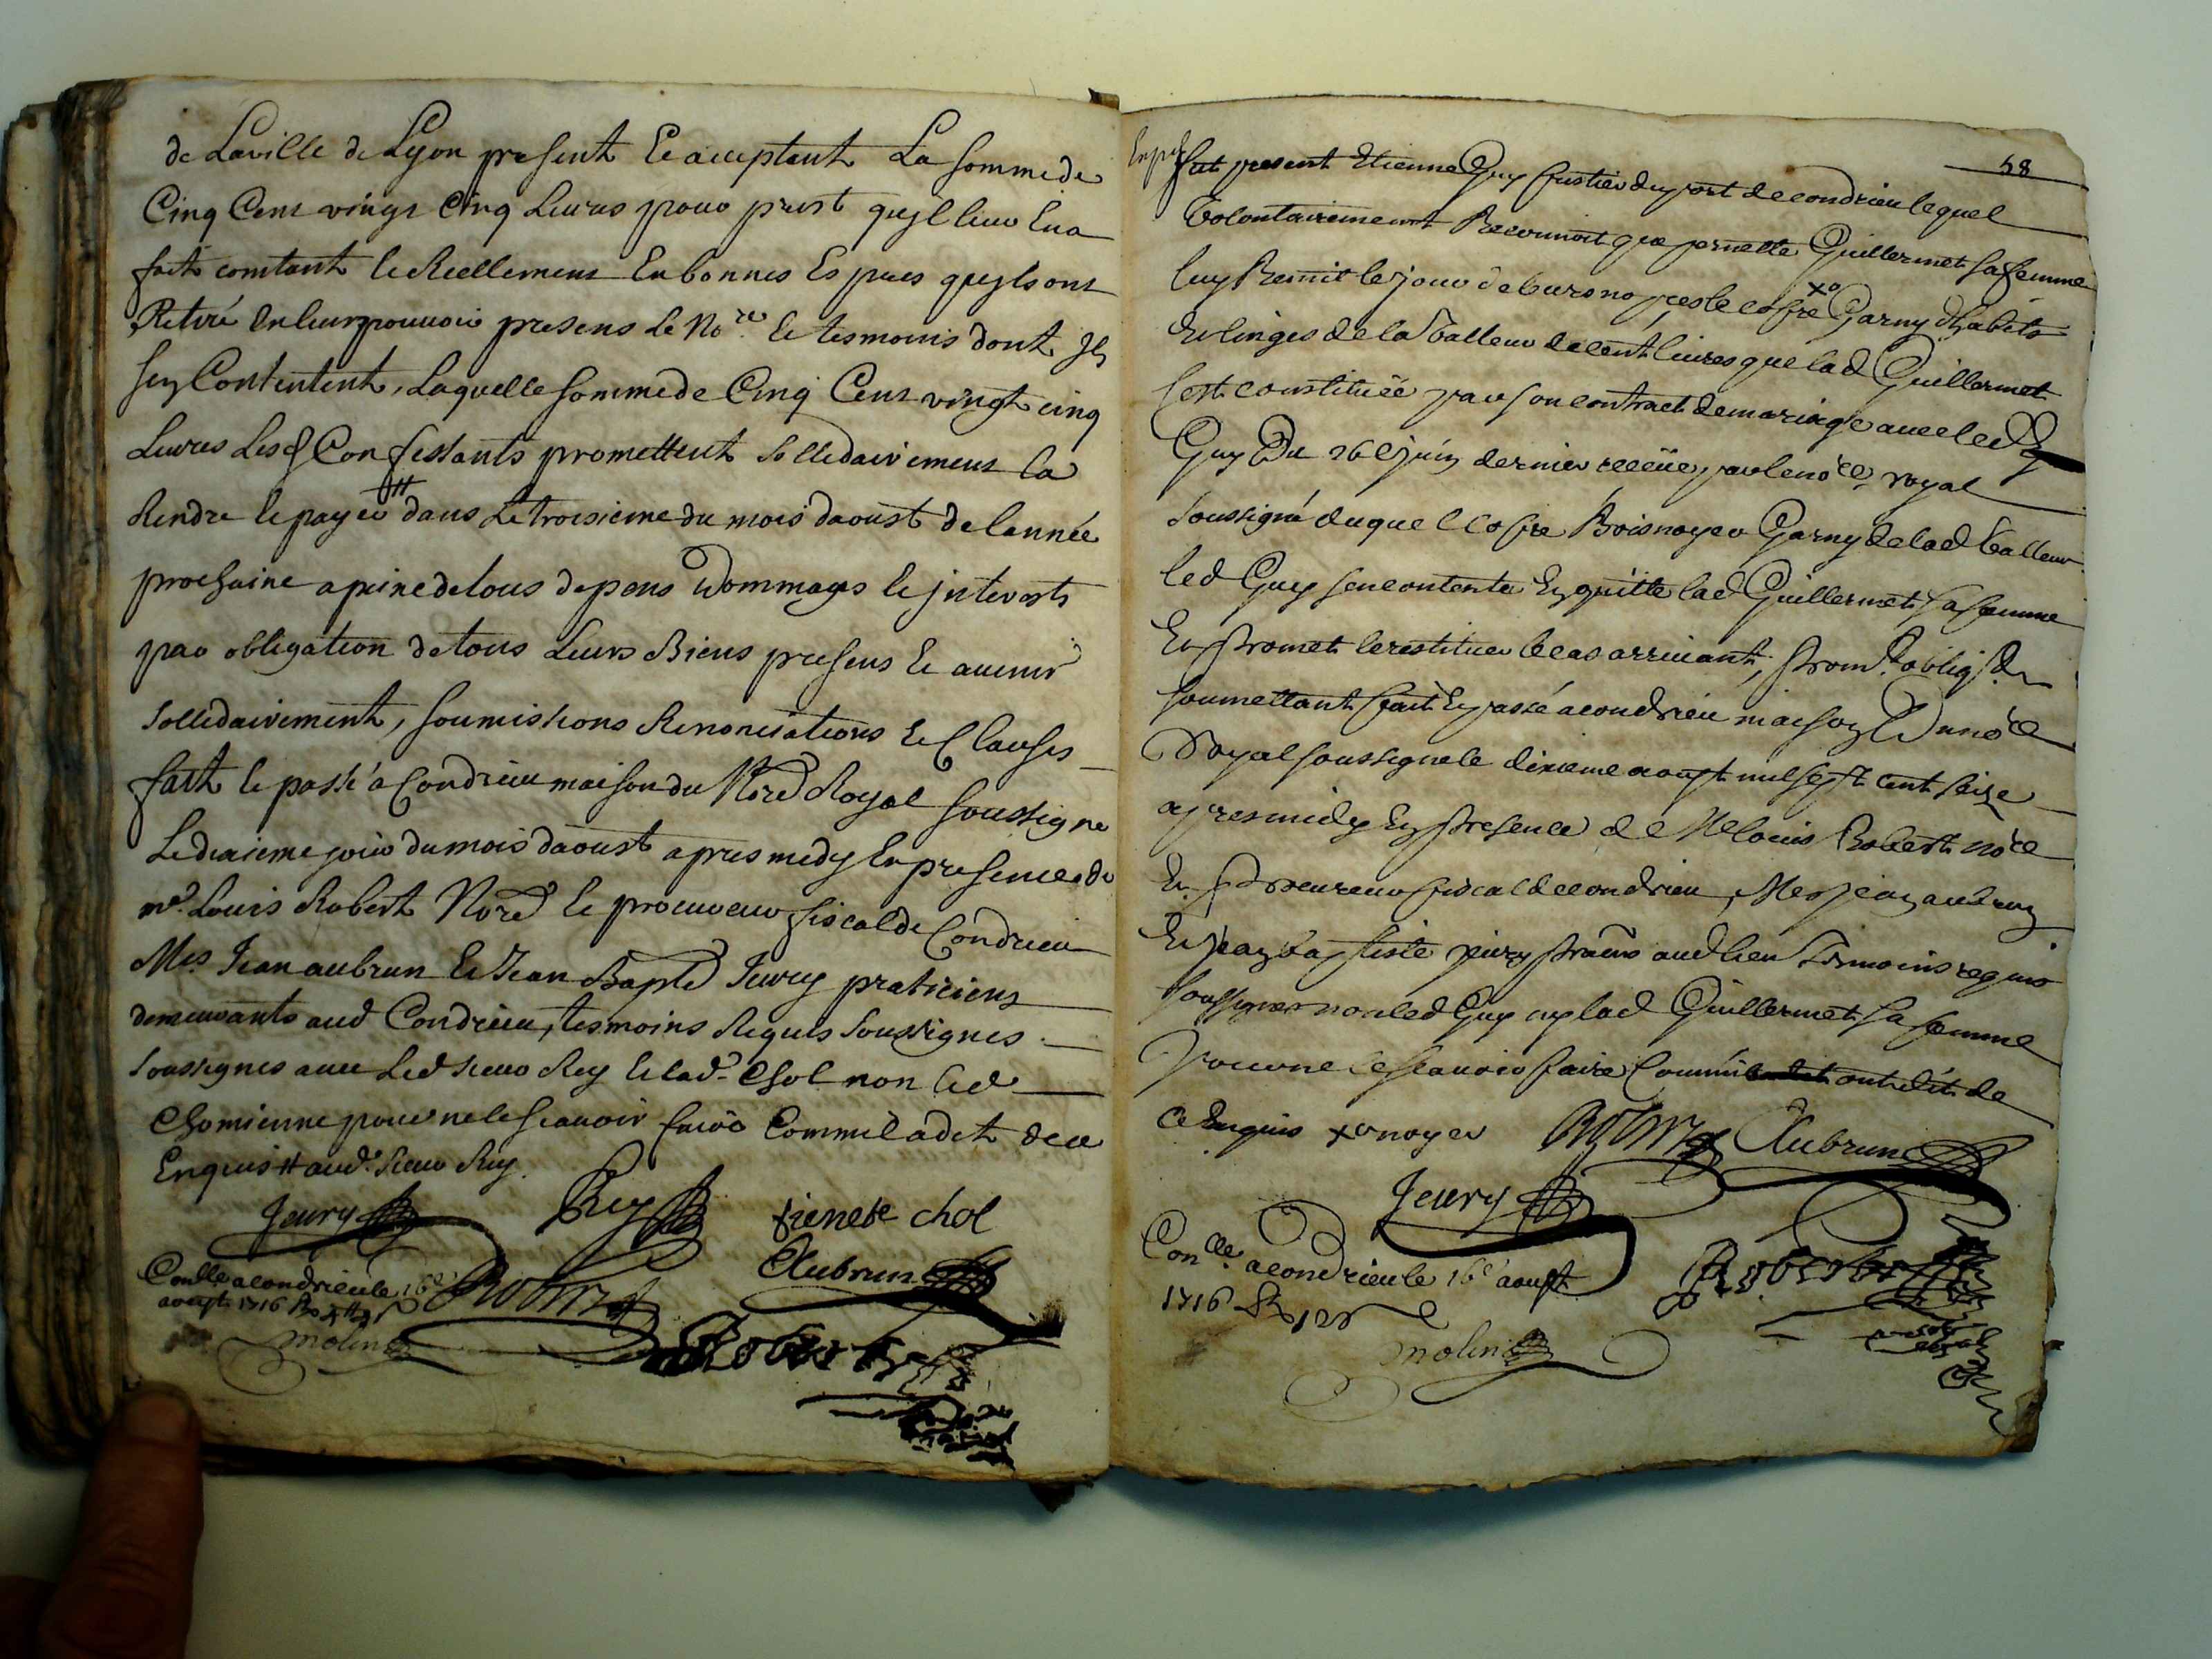 de Laville de Lyon present Et acceptant La somme de
Cinq Cent vingt Cinq Livres pour prest qu'jl leur En a
fait comtant Et Reellement En bonnes Especes qu'jls ont
Retiré En leur pouvoir presens Le No.re Et tesmoins dont jls
sen Contentent, Laquelle somme de Cinq Cent vingt cinq
Livres Lesd Confessants promettent sollidairement la
Rendre Et payer # dans Le troisieme du mois daoust de lannée
prochaine a peine de tous depens Dommages Et jnterests
par obligation de tous Leurs Biens presens Et avenir
sollidairement, soumissions Renonciations Et Clauses
fait Et passé a Condrieu maison du Nore Royal soussigne
Le dixieme jour du mois daoust apres medy En presence de
me. Louis Robert Nore Et procureur fiscal de Condrieu
Mes Jean aubrun Et Jean Bapte Jeury praticiens
demeurants aud Condrieu, tesmoins Requis soussignes
soussignes avec Led sieur Rey Et lad. Chol non led
Chomienne pour ne le scavoir faire Comme il a dit de ce
Enquis # aud. sieur Rey.
Jeury Rey fienete chol
Conlle a condrieu le 16e
aoust 1716
Aubrun
molin
Robert
58
fut present Etienne Guy fustier du port de condrieu lequel
Volontairement Reconnoit que pernette Guillermet sa femme
luy Remit le jour de leurs nopces le cofre xo Garny dhabits
Et linges de la Valleur de cent livres que lad Guillermet
sest constituée par son contract de mariage avec led
Guy Du 26e juin dernier receüe par le nore royal
soussigné duquel Cofre Bois noyer Garny de lad Valleur
led Guy sen contente En quitte lad Guillermet sa femme
Et promet le restituer le cas arrivant, prom. oblig.
soumettant fait Et passé a condrieu maison Du nore
Royal soussigne le dixieme aoust mil sept cent seize
apres midy En presence de Me louis Robert nore
Et procureur fiscal de condrieu, Mes jean aubrun
Et jean baptiste jeury prains aud lieu tesmoins requis
soussignes non led Guy ny lad Guillermet sa femme
pour ne le scavoir faire Comme ont dit de
ce Enquis xo noyer Aubrun
Jeury
Con.lle a condrieu le 16e aoust
1716 R 12s
Robert
molin